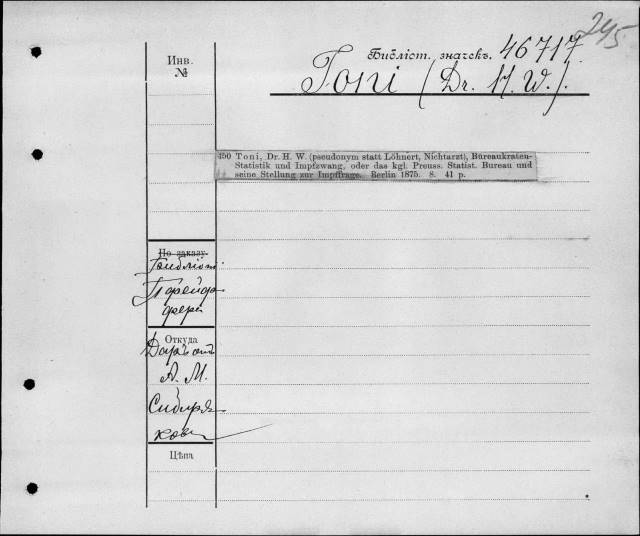 245
Инв.
№
Библіот. значекъ. 46717
Toni (Dr. H. W.).
490 Toni, Dr. H. W. (pseudonym statt Löhnert, Nichtarzt), Büreaukraten-
Statistik und Impfzwang, oder das kgl. Preuss. Statist. Bureau und
seine Stellung zur Impffrage. Berlin 1875. 8. 41 p.
По заказу
Откуда
Даръ отъ
А. М.
Сибиря-
кова
Цѣна